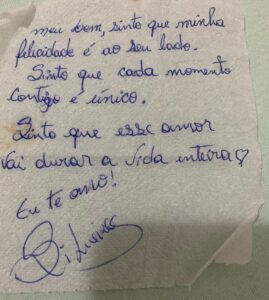 meu bem, sinto que minha
felicidade é ao seu lado.
Sinto que cada momento
contigo é único.
Sinto que esse amor
vai durar a vida inteira♡
Eu te amo!